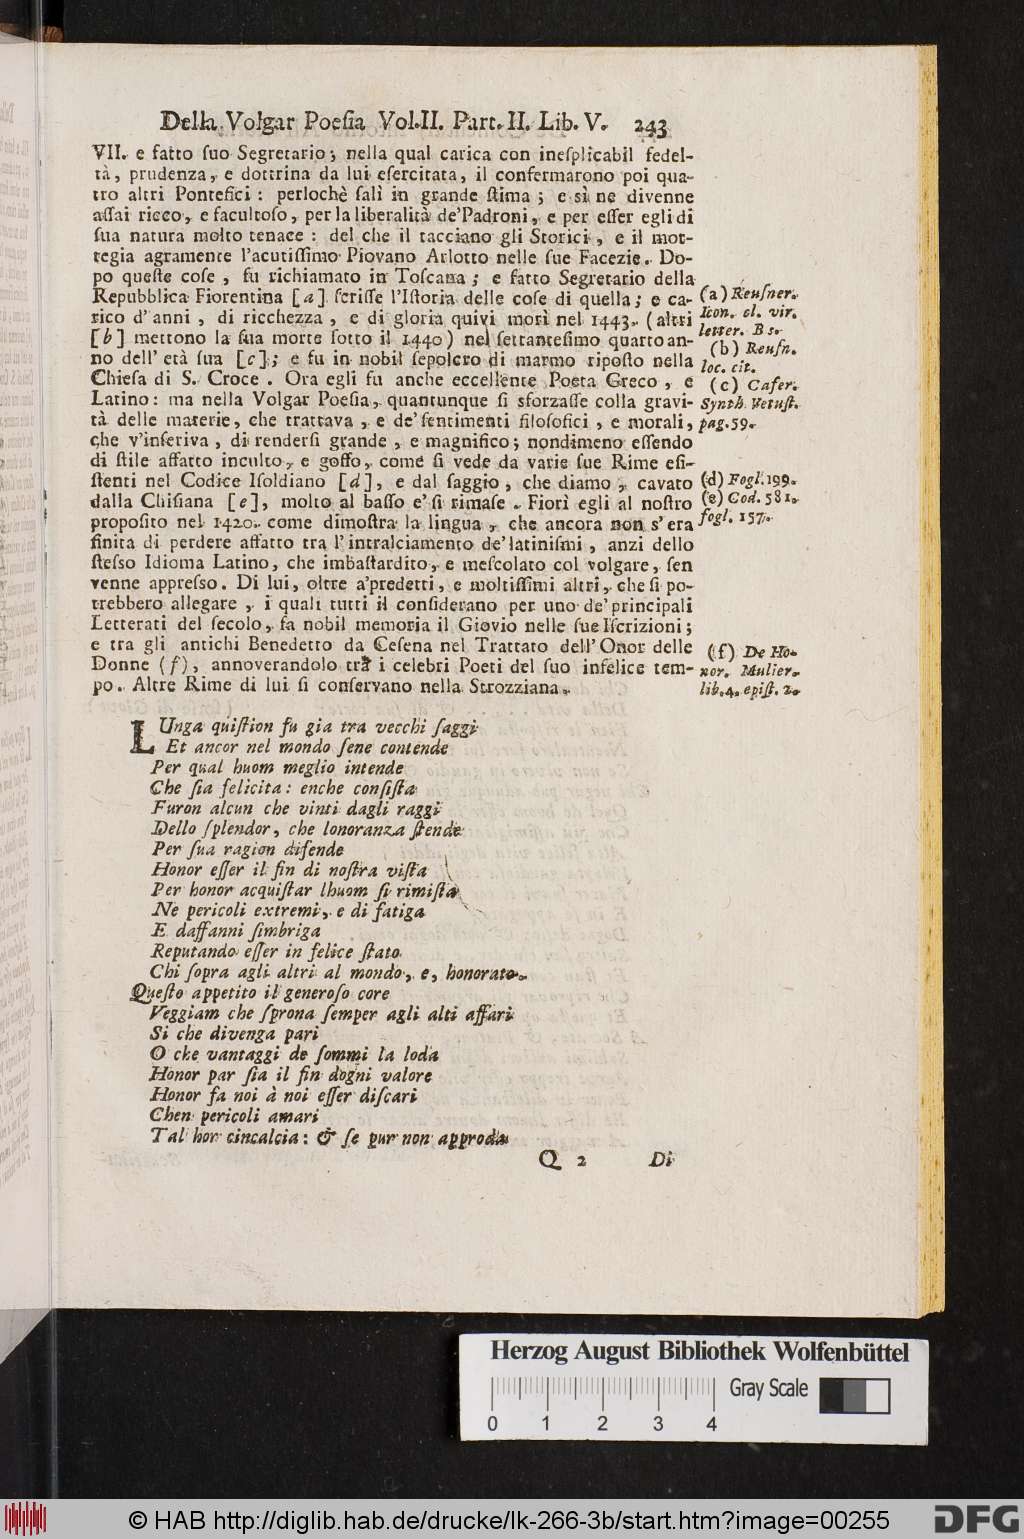 Della Volgar Poesia Vol.II. Part. II. Lib. V. 243
VII. e fatto suo Segretario; nella qual carica con inesplicabil fedel-
tà, prudenza, e dottrina da lui esercitata, il confermarono poi qua-
tro altri Pontefici: perlochè salì in grande stima; e sì ne divenne
assai ricco, e facultoso, per la liberalità de'Padroni, e per esser egli di
sua natura molto tenace: del che il tacciano gli Storici, e il mot-
tegia agramente l'acutissimo Piovano Arlotto nelle sue Facezie. Do-
po queste cose, fu richiamato in Toscana; e fatto Segretario della
Repubblica Fiorentina [a] scrisse l'Istoria delle cose di quella; e ca-
rico d'anni, di ricchezza, e di gloria quivi morì nel 1443. (altri
[b] mettono la sua morte sotto il 1440) nel settantesimo quarto an-
no dell'età sua [c]; e fu in nobil sepolcro di marmo riposto nella
Chiesa di S. Croce. Ora egli fu anche eccellente Poeta Greco, e
Latino: ma nella Volgar Poesia, quantunque si sforzasse colla gravi-
tà delle materie, che trattava, e de'sentimenti filosofici, e morali,
che v'inseriva, di rendersi grande, e magnifico; nondimeno essendo
di stile affatto inculto, e goffo, come si vede da varie sue Rime esi-
stenti nel Codice Isoldiano [d], e dal saggio, che diamo, cavato
dalla Chisiana [e], molto al basso e' si rimase. Fiorì egli al nostro
proposito nel 1420. come dimostra la lingua, che ancora non s'era
finita di perdere affatto tra l'intralciamento de'latinismi, anzi dello
stesso Idioma Latino, che imbastardito, e mescolato col volgare, sen
venne appresso. Di lui, oltre a'predetti, e moltissimi altri, che si po-
trebbero allegare, i quali tutti il considerano per uno de'principali
Letterati del secolo, fa nobil memoria il Giovio nelle sue Iscrizioni;
e tra gli antichi Benedetto da Cesena nel Trattato dell'Onor delle
Donne (f), annoverandolo tra i celebri Poeti del suo infelice tem-
po. Altre Rime di lui si conservano nella Strozziana.
(a) Reusner.
Icon. cl. vir.
letter. B s.
(b) Reusn.
loc. cit.
(c) Cafer.
Synth. Vetust.
pag. 59.
(d) Fogl. 199.
(e) Cod. 581.
fogl. 157.
(f) De Ho-
nor. Mulier.
lib. 4. epist. 2.
LUnga quistion fu gia tra vecchi saggi
Et ancor nel mondo sene contende
Per qual huom meglio intende
Che sia felicita: enche consista
Furon alcun che vinti dagli raggi
Dello splendor, che lonoranza stende
Per sua ragion difende
Honor esser il fin di nostra vista
Per honor acquistar lhuom si rimista
Ne pericoli extremi, e di fatiga
E daffanni simbriga
Reputando esser in felice stato
Chi sopra agli altri al mondo, e, honorato.
Questo appetito il generoso core
Veggiam che sprona semper agli alti affari
Si che divenga pari
O che vantaggi de sommi la loda
Honor par sia il fin dogni valore
Honor fa noi à noi esser discari
Chen pericoli amari
Tal hor cincalcia: & se pur non approda
Q 2 Di
Herzog August Bibliothek Wolfenbüttel
Gray Scale
0 1 2 3 4
© HAB http://diglib.hab.de/drucke/lk-266-3b/start.htm?image=00255
DFG